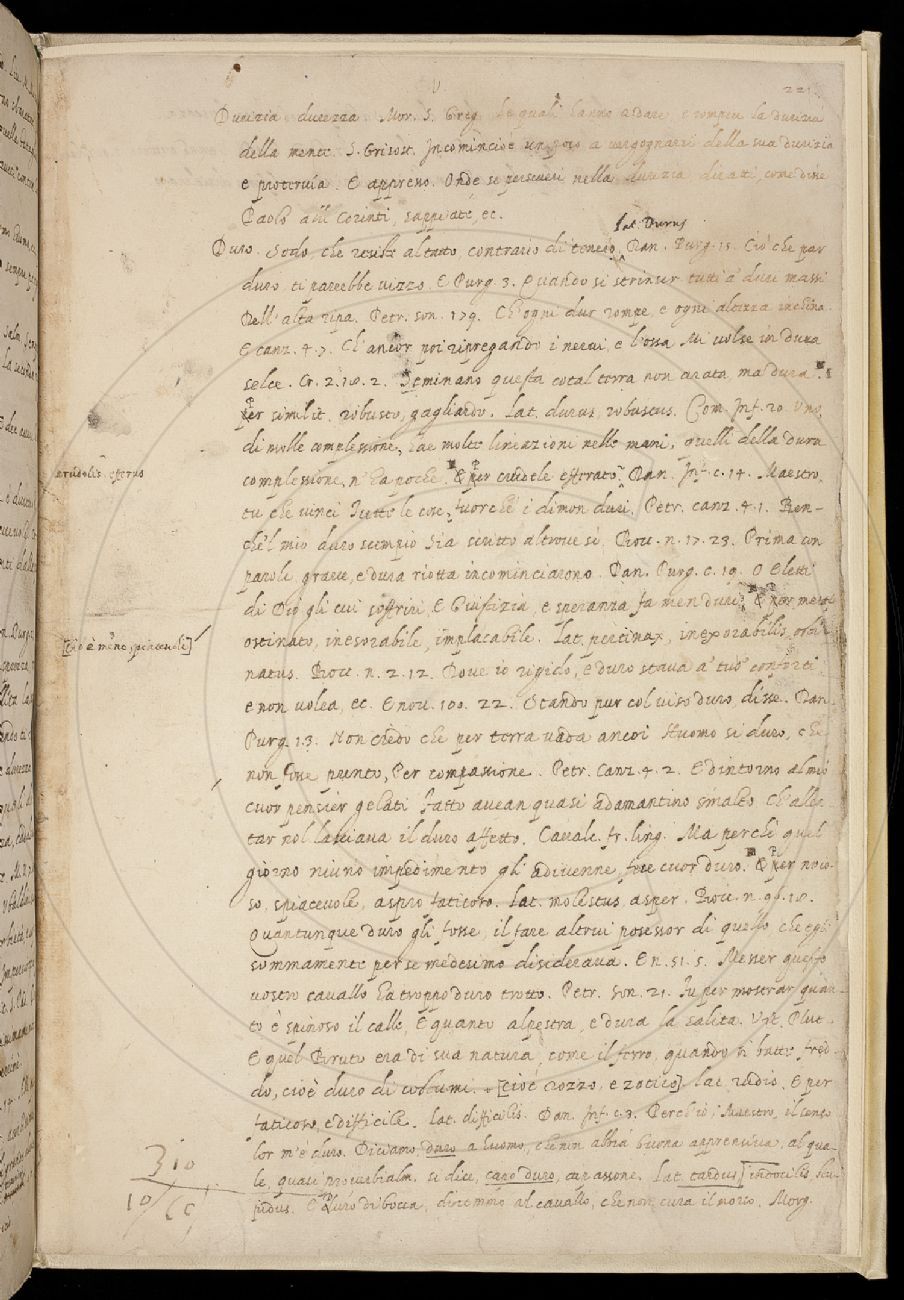 221
Durizia durezza. Mor. S. Greg. Le quali hanno a dare, e rompere la durizia
della mente. S. Grisost. Incominciò e un poco a vergognarsi della sua durizia
e protervia. E appresso. Onde se perseveri nella durizia di
Paolo a'll Corinti, sappiate, ec.
lat. Durus
Duro. Sodo, che resiste al tatto, contrario di tenero, Dan. Purg. 15. Ciò che par
duro ti parrebbe vizzo. E Purg. 3. Quando si strinser tutti a' duri massi
Dell'alta ripa. Petr. son. 179. Ch'ogni dur rompe, e ogni altezza inchina
E canz. 4. 7. Ch'ancor poi ripregando i nervi, e l'ossa Mi volse in dura
selce. Cr. 2. 18. 2. Seminano questa cotal terra non arata, ma dura.
Per similit. robusto, gagliardo. Lat. durus, robustus. Com. Inf. 20. Uno,
di molle complessione, hae molte lineazioni nelle mani, quelli della dura
crudelis efferus
complessione, n'ha poche. & per crudele efferato. Dan. Inf. c. 14. Maestro
tu che vinci Tutte le cose, fuorchè i dimon duri. Petr. canz. 4. 1. Ben-
chè'l mio duro scempio Sia scritto altrove sì, Bocc. n. 17. 23. Prima con
parole grave, e dura riotta incominciarono. Dan. Purg. c. 19. O eletti
di Dio gli cui soffriri, E Giustizia, e speranza fa men duri. & per metaf.
[cioè meno spiacevoli]
ostinato, inesorabile, implacabile. Lat. pertinax, inexorabilis, obsti
natus. Bocc. n. 2. 12. Dove io rigido, e duro stava a' tuo' conforti
e non volea, ec. E nov. 100. 22. Stando pur col viso duro, disse. Dan.
Purg. 13. Non credo che per terra vada ancoi Huomo sì duro, che
non fosse punto, Per compassione. Petr. Canz. 4. 2. E d'intorno al mio
cuor pensier gelati Fatto avean quasi adamantino smalto Ch'allen-
tar nol lasciava il duro affetto. Cavalc. fr. ling. Ma perchè quel
giorno niuno impedimento gli adivenne, fece cuor duro. & per noio-
so, spiacevole, aspro faticoso. Lat. molestus, asper. Bocc. n. 99. 18.
Quantunque duro gli fosse, il fare altrui possessor di quello, che egli
sommamente per se medesimo disiderava. E n. 51. 5. Messer questo
vostro cavallo ha troppo duro trotto. Petr. son. 21. Fu per mostrar quan-
to è spinoso il calle, E quanto alpestra, e dura la salita. Vit. Plut.
E quel Bruto era di sua natura, come il ferro, quando si batte fred-
do, cioè duro di costumi. [cioè rozzo, e zotico] lat. rudis, E per
faticoso, e difficile. Lat. difficilis. Dan. Inf. c. 3. Perch'io: Maestro, il senso
lor m'è duro. Diciamo, duro a huomo, che non abbia buona apprensiva, al qua-
le, quasi proverbialm. si dice, capo duro, Lat. tardus] indocilis
E Duro di bocca, diciamo al cavallo, che non cura il morso. Morg.
310
10/